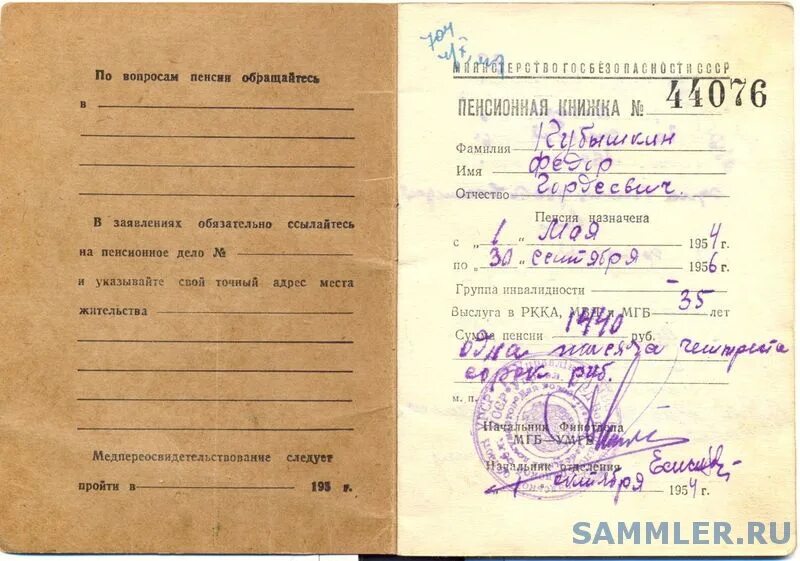 По вопросам пенсии обращайтесь
в
В заявлениях обязательно ссылайтесь
на пенсионное дело №
и указывайте свой точный адрес места
жительства
Медпереосвидетельствование следует
пройти в 195 г.
704
МИНИСТЕРСТВО ГОСБЕЗОПАСНОСТИ СССР
ПЕНСИОННАЯ КНИЖКА № 44076
Фамилия Кубышкин
Имя Федор
Отчество Гордеевич.
Пенсия назначена
с „1“ Мая 1954 г.
по „30“ сентября 1956 г.
Группа инвалидности -
Выслуга в РККА, МВД и МГБ 35 лет
Сумма пенсии 1440 руб.
одна тысяча четыреста
сорок руб.
м. п.
Начальник Финотдела
МГБ—УМГБ
Начальник отделения
1954 г.
SAMMLER.RU